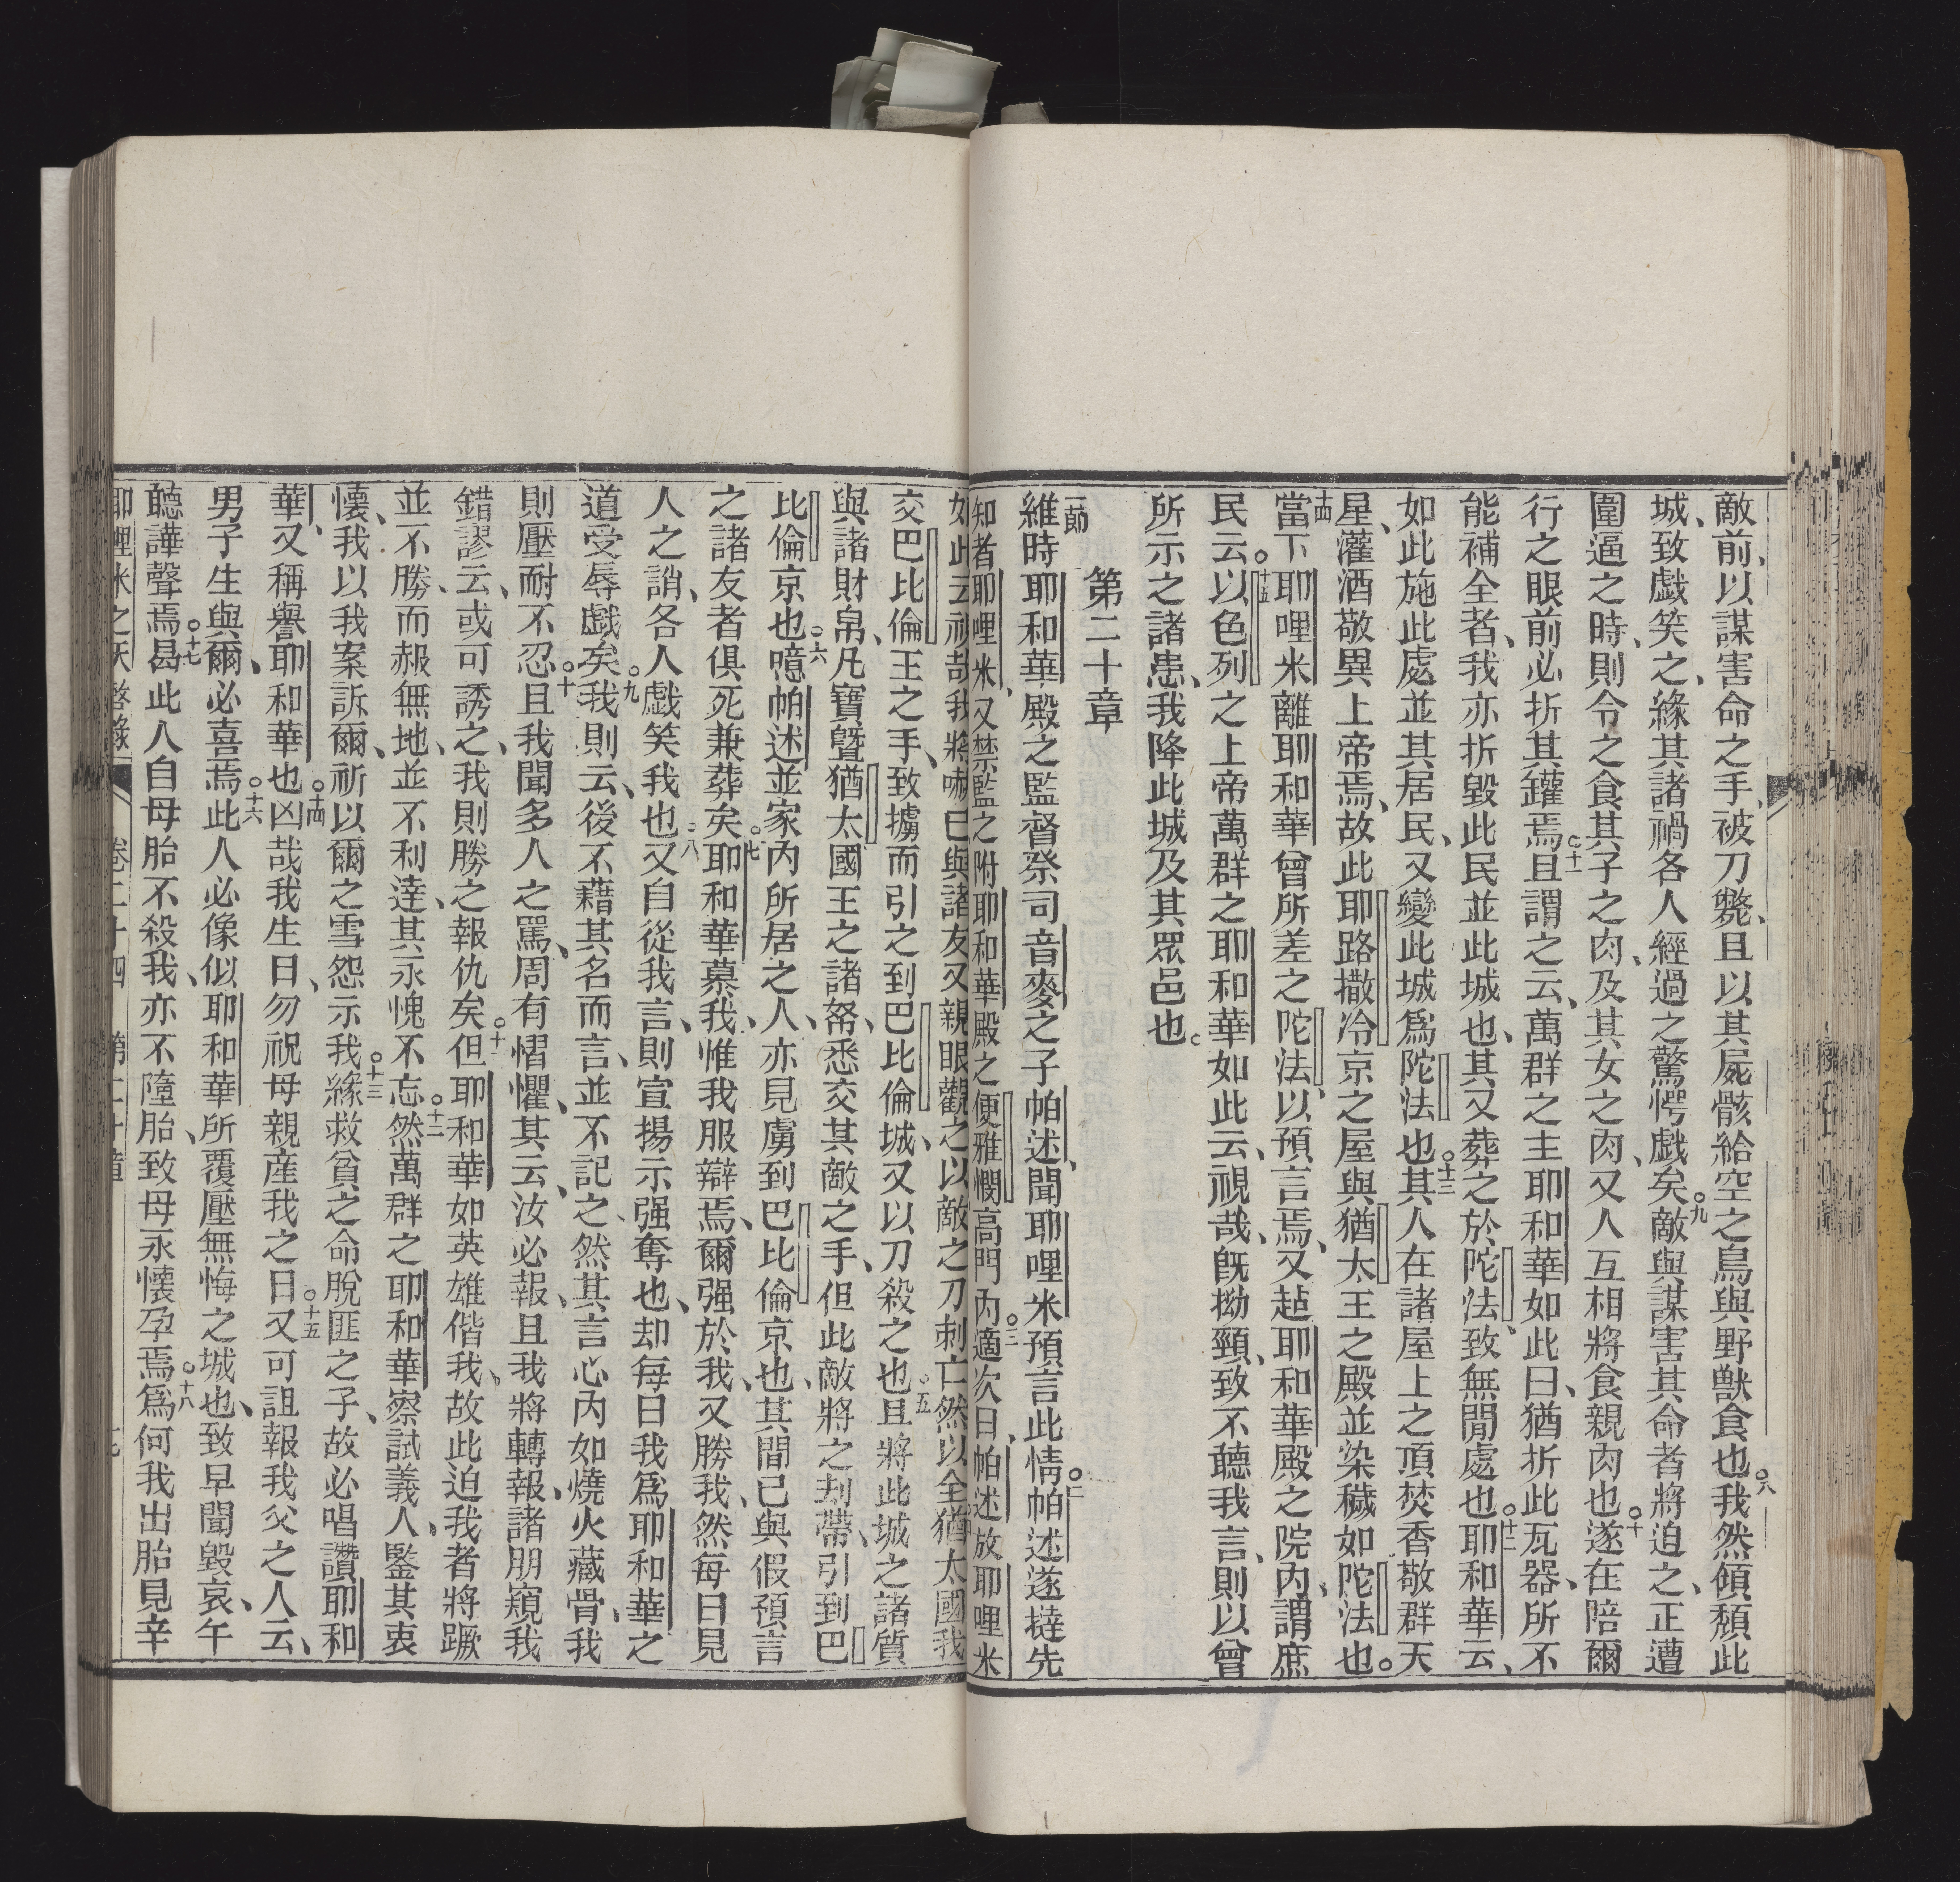 敵前、以謀害命之手、被刀斃、且以其屍骸給空之鳥與野獸食也。八我然傾頹此
城、致戲笑之、緣其諸禍各人經過之驚愕戲矣。九敵與謀害其命者將迫之、正遭
圍逼之時、則令之食其子之肉、及其女之肉、又人互相將食親肉也。十遂在陪爾
行之眼前必折其鑵焉。十一且謂之云、萬群之主耶和華如此曰、猶折此瓦器、所不
能補全者、我亦折毀此民並此城也、其又葬之於陀法、致無閒處也。十二耶和華云、
如此施此處並其居民、又變此城爲陀法也。十三其人在諸屋上之頂焚香敬群天
星、灌酒敬異上帝焉、故此耶路撒冷京之屋與猶太王之殿並染穢如陀法也。
十四當下耶哩米離耶和華曾所差之陀法、以預言焉、又趂耶和華殿之院內、謂庶
民云。十五以色列之上帝萬群之耶和華如此云、視哉、旣拗頸、致不聽我言、則以曾
所示之諸患、我降此城及其眾邑也。
第二十章
一節維時耶和華殿之監督祭司音麥之子帕述、聞耶哩米預言此情。二帕述遂撻先
知者耶哩米、又禁監之附耶和華殿之便雅憫高門內。三適次日、帕述放耶哩米
如此云、視哉、我將嚇己與諸友、又親眼觀之以敵之刀刺亡、然以全猶太國我
交巴比倫王之手、致擄而引之到巴比倫城、又以刀殺之也。五且將此城之諸質
與諸財帛、凡寶曁猶太國王之諸帑、悉交其敵之手、但此敵將之刦帶、引到巴
比倫京也。六噫帕述並家內所居之人、亦見虜到巴比倫京也、其間已與假預言
之諸友者俱死兼葬矣。七耶和華慕我、惟我服辯焉、爾强於我、又勝我、然每日見
人之誚、各人戲笑我也。八又自從我言、則宣揚示强奪也、却每日我爲耶和華之
道受辱戲矣。九我則云、後不藉其名而言、並不記之、然其言心內如燒火藏骨、我
則壓耐不忍。十且我聞多人之罵、周有慴懼、其云、汝必報、且我將轉報、諸朋窺我
錯謬云、或可誘之、我則勝之報仇矣。十一但耶和華如英雄偕我、故此迫我者將蹶
並不勝、而赧無地、並不利達、其永愧不忘。十二然萬群之耶和華察試義人、鑒其衷
懷、我以我案訴爾、祈以爾之雪怨示我。十三緣救貧之命脫匪之子、故必唱讚耶和
華、又稱譽耶和華也。十四凶哉我生日、勿祝母親産我之日。十五又可詛報我父之人云、
男子生與爾、必喜焉。十六此人必像似耶和華所覆壓無悔之城也、致早聞毀哀、午
聽譁聲焉。十七曷此人自母胎不殺我、亦不墮胎、致母永懷孕焉。十八爲何我出胎見辛
耶哩米之天啓錄 卷二十四 第二十章